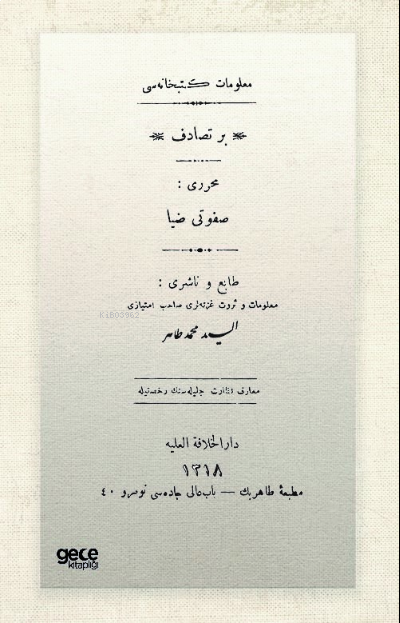 معلومات كتبخانه‌سی
بر تصادف
محرری :
صفوتی ضیا
طابع و ناشری :
معلومات و ثروت غزته‌لری صاحب امتیازی
السید محمد طاهر
معارف نظارت جلیله‌سنك رخصتیله
دار الخلافة العلیه
١٣١٨
مطبعۀ طاهر بك — باب عالی جاده‌سی نومرو ٤٠
gece
kitaplığı